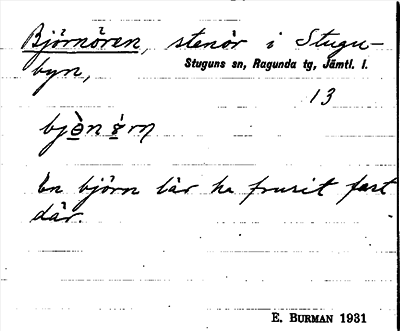 Björnören, stenör i Stugu-
byn,
Stuguns sn, Ragunda tg, Jämtl. l.
13
En björn lär ha frusit fast
där.
E. BURMAN 1931